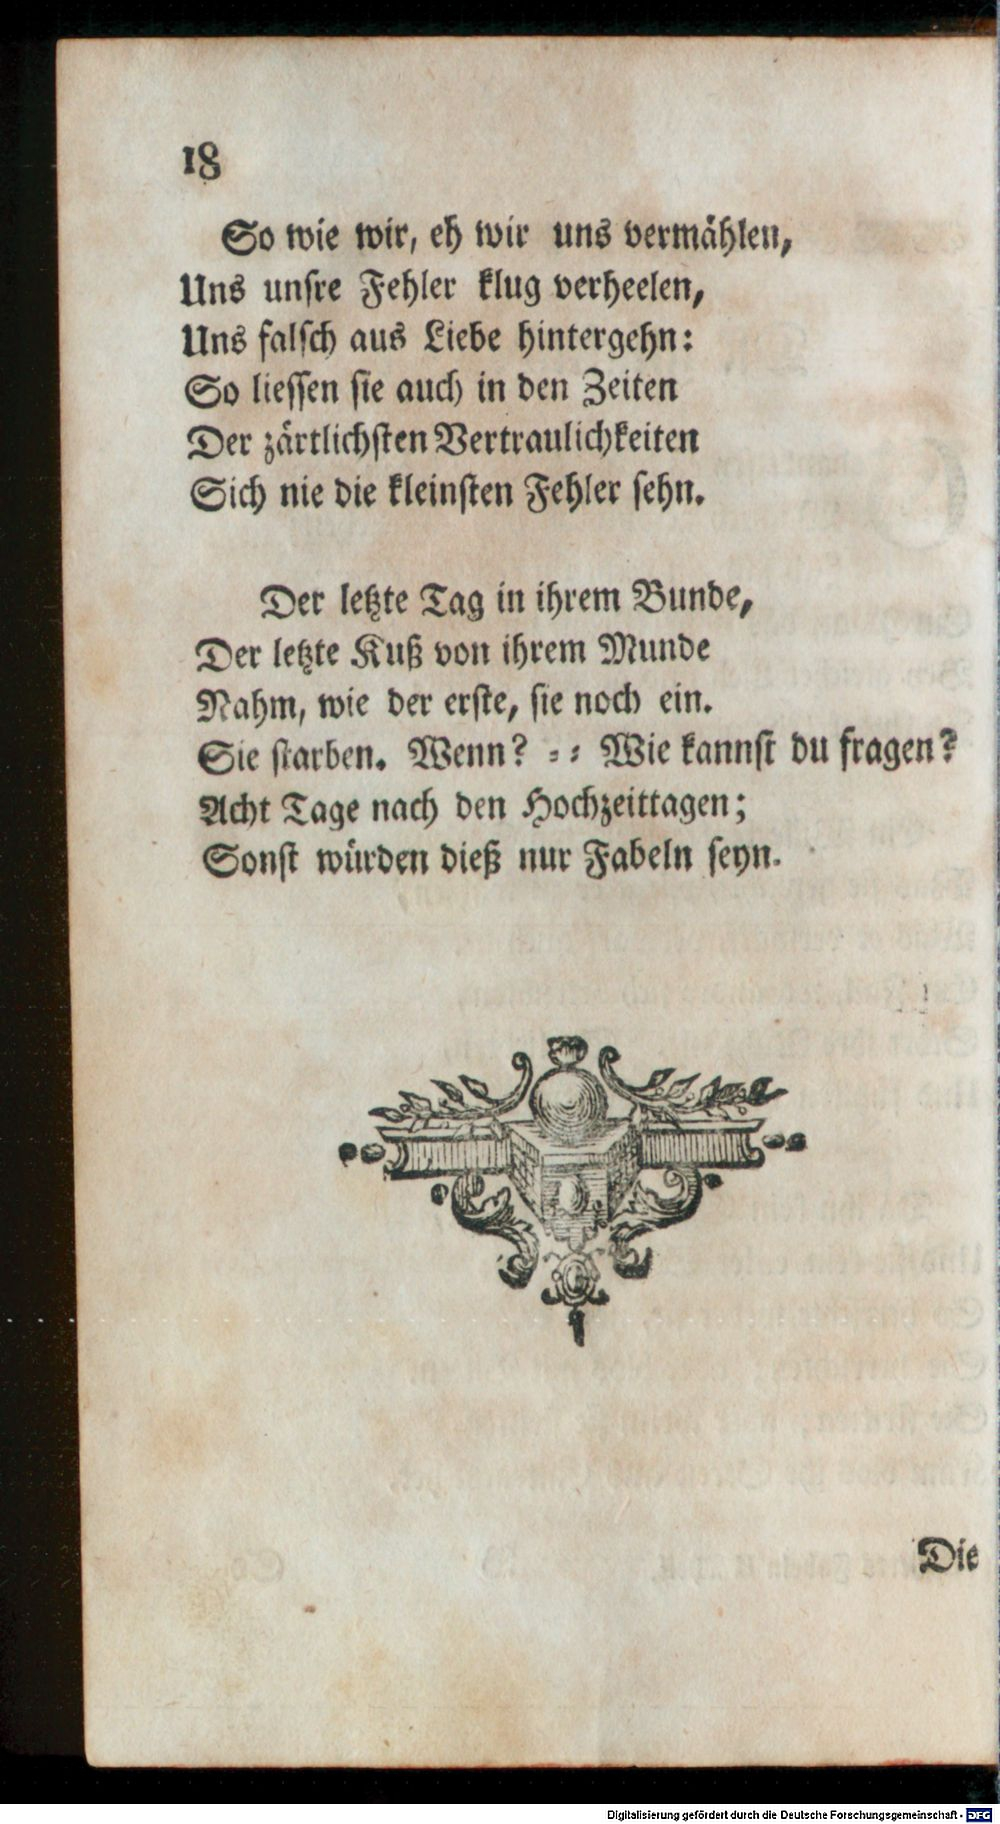 18
So wie wir, eh wir uns vermählen,
Uns unsre Fehler klug verheelen,
Uns falsch aus Liebe hintergehn:
So liessen sie auch in den Zeiten
Der zärtlichsten Vertraulichkeiten
Sich nie die kleinsten Fehler sehn.
Der letzte Tag in ihrem Bunde,
Der letzte Kuß von ihrem Munde
Nahm, wie der erste, sie noch ein.
Sie starben. Wenn? -- Wie kannst du fragen?
Acht Tage nach den Hochzeittagen;
Sonst würden dieß nur Fabeln seyn.
Die
Digitalisierung gefördert durch die Deutsche Forschungsgemeinschaft - DFG